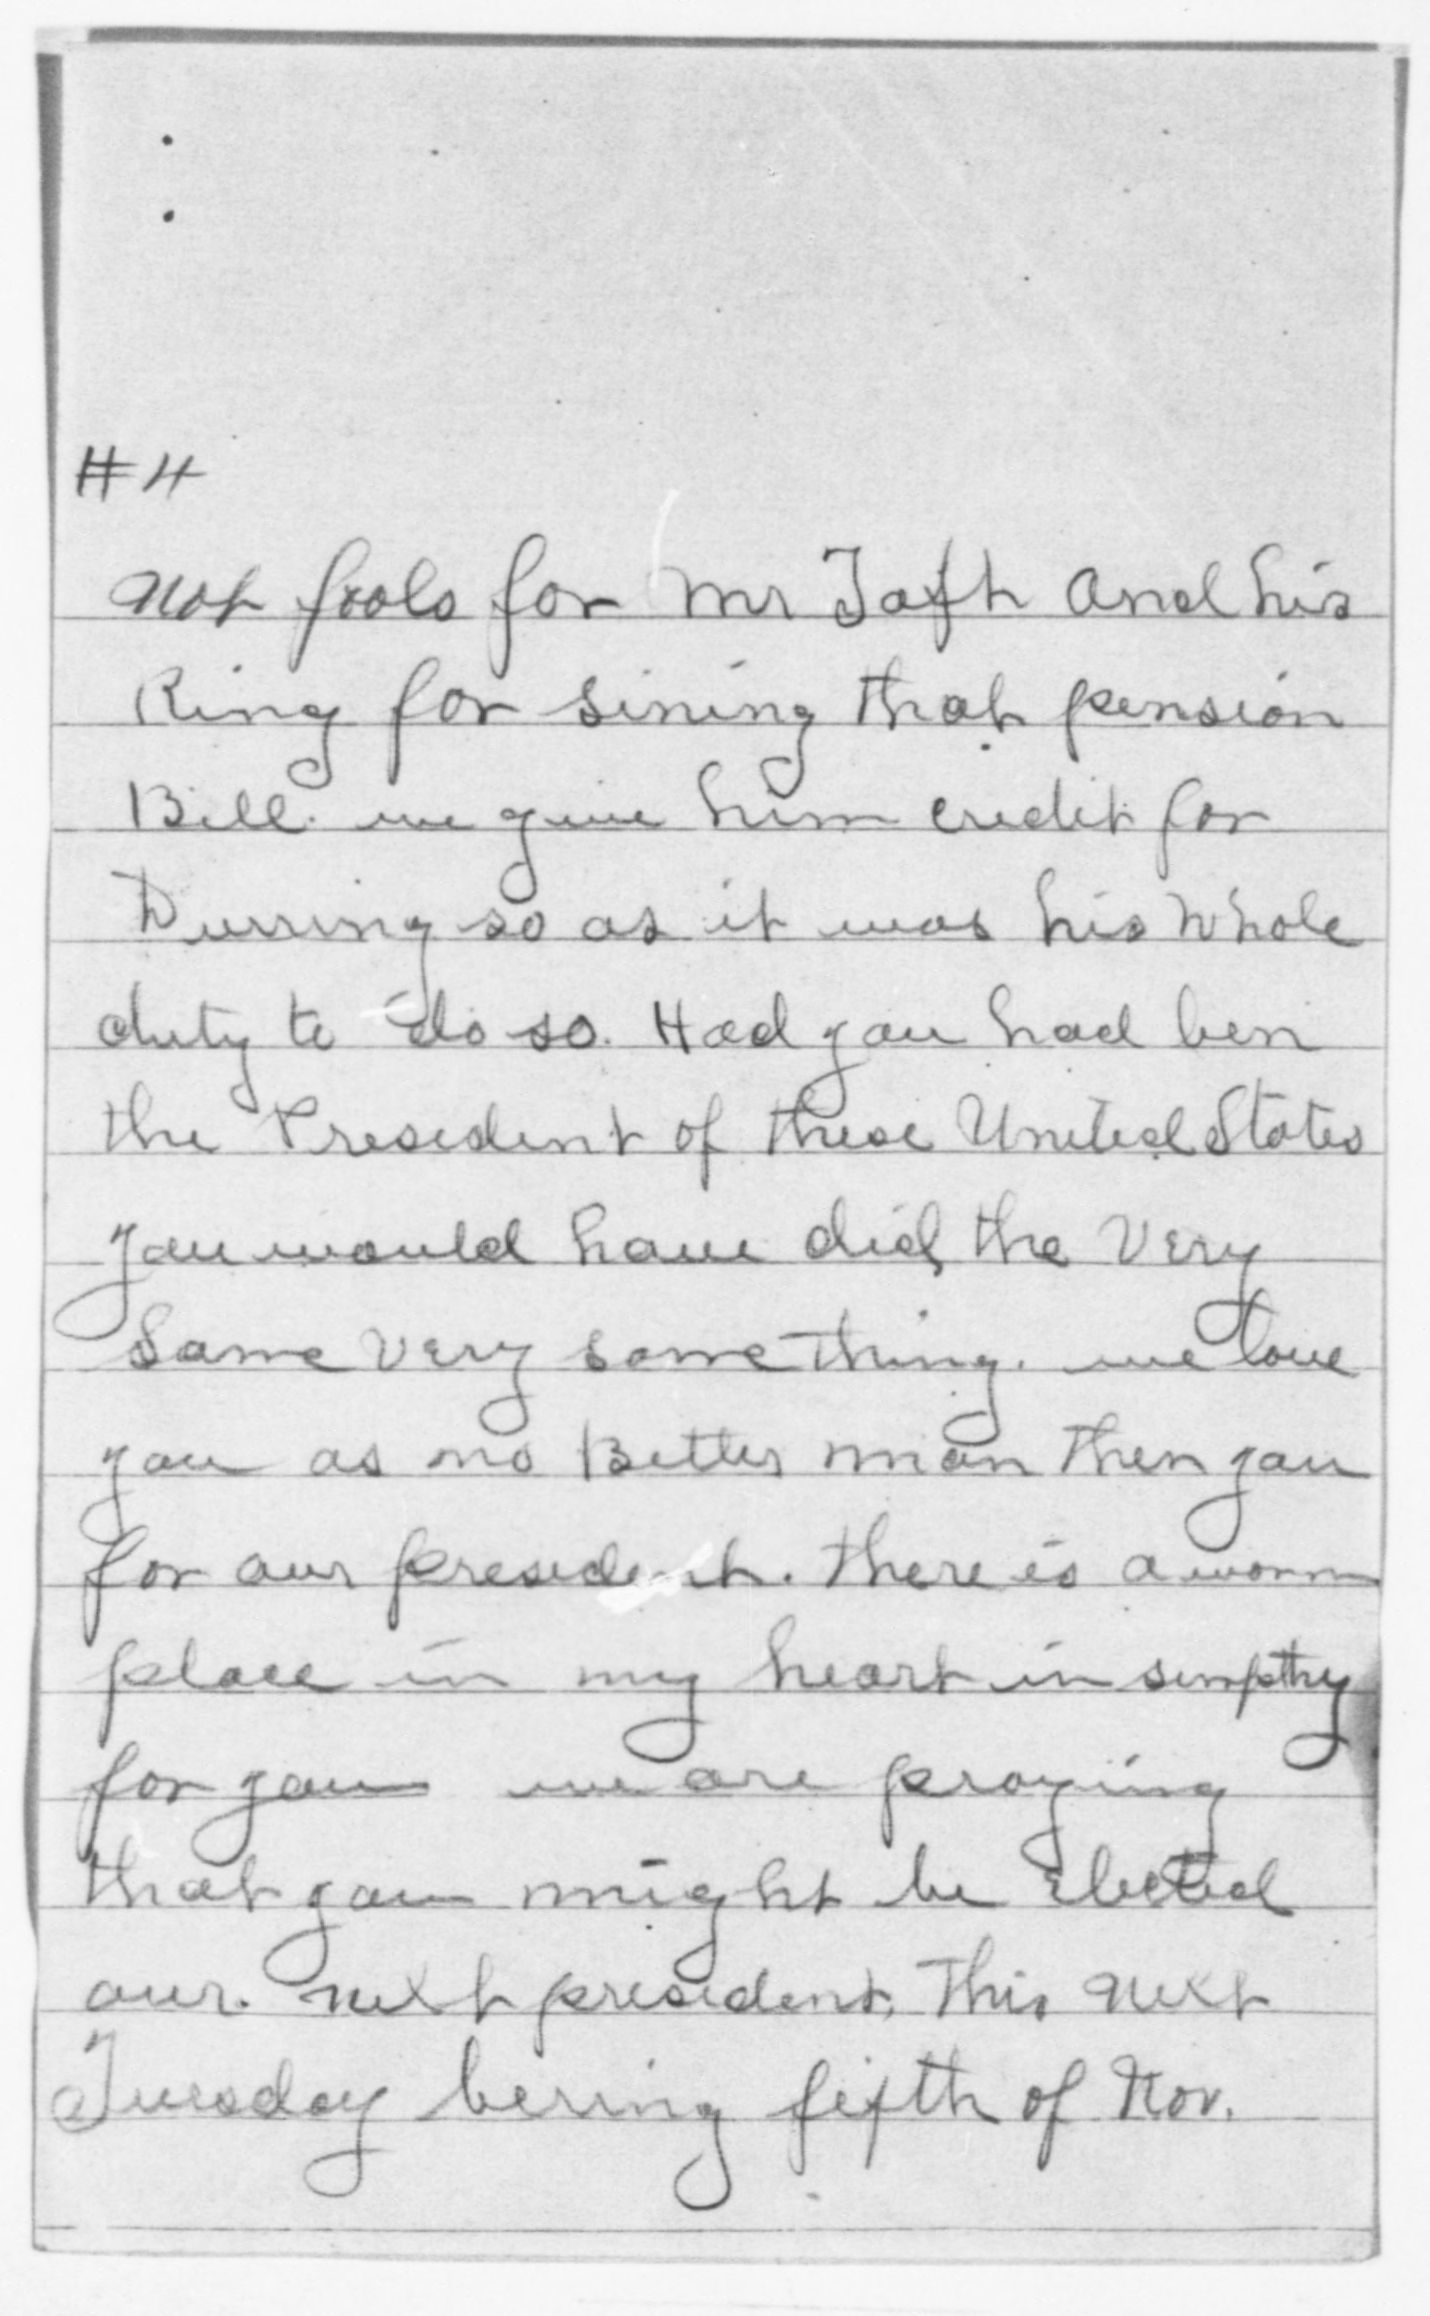 #4
not fools for Mr Taft And his
Ring for sining that pension
Bill. we give him credit for
Durring so as it was his whole
duty to do so. Had you had ben
the President of these United States
you would have did the very
same very same thing. we love
you as no Better man then you
for our president. there is a worm
place in my heart in simpthy
for you we are praying
that you might be Elected
our next president, This next
Tuesday berring fifth of Nov.